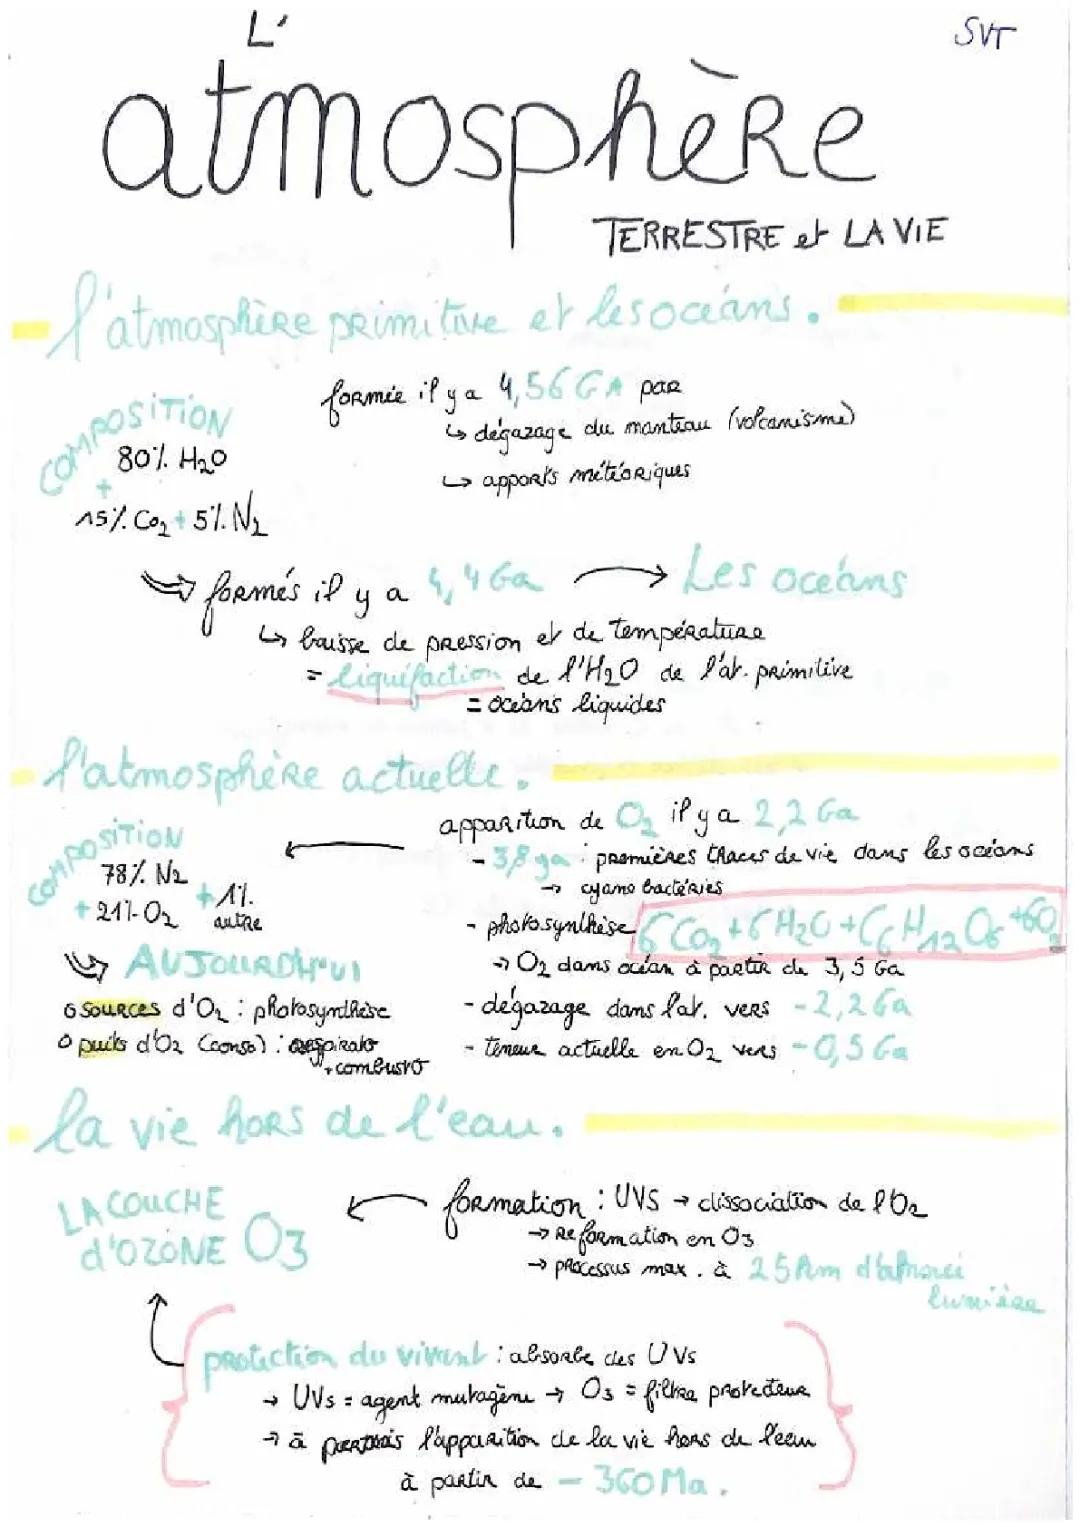 L'
SVT
atmosphère
TERRESTRE et LA VIE
l'atmosphère primitive et les océans.
COMPOSITION
80% H2O
+
15% CO2 + 5% N2
formée il y a 4,56 GA par
↳ dégazage du manteau (volcanisme)
↳ apports météoriques
formés il y a 4,4 Ga → Les océans
↳ baisse de pression et de température
= liquéfaction de l'H2O de l'at. primitive
= océans liquides
l'atmosphère actuelle.
COMPOSITION
78% N2
+ 21% O2 + 1% autre
apparition de O2 il y a 2,2 Ga
- 3,8 ga : premières traces de vie dans les océans
→ cyano bactéries
- photosynthèse 6CO2 + 6H2O + C6H12O6 + 6O2
→ O2 dans océan à partir de 3,5 Ga
- dégazage dans l'at. vers -2,2 Ga
- teneur actuelle en O2 vers -0,5 Ga
AUJOURD'HUI
o sources d'O2 : photosynthèse
o puits d'O2 (conso) : respirato
+ combusto
la vie hors de l'eau.
LA COUCHE
d'OZONE O3
formation : UVs → dissociation de l'O2
→ Reformation en O3
→ processus max. à 25 km d'a
protection du vivant : absorbe des UVs
→ UVs = agent mutagène → O3 = filtre protecteur
→ à permis l'apparition de la vie hors de l'eau
à partir de - 360 Ma.